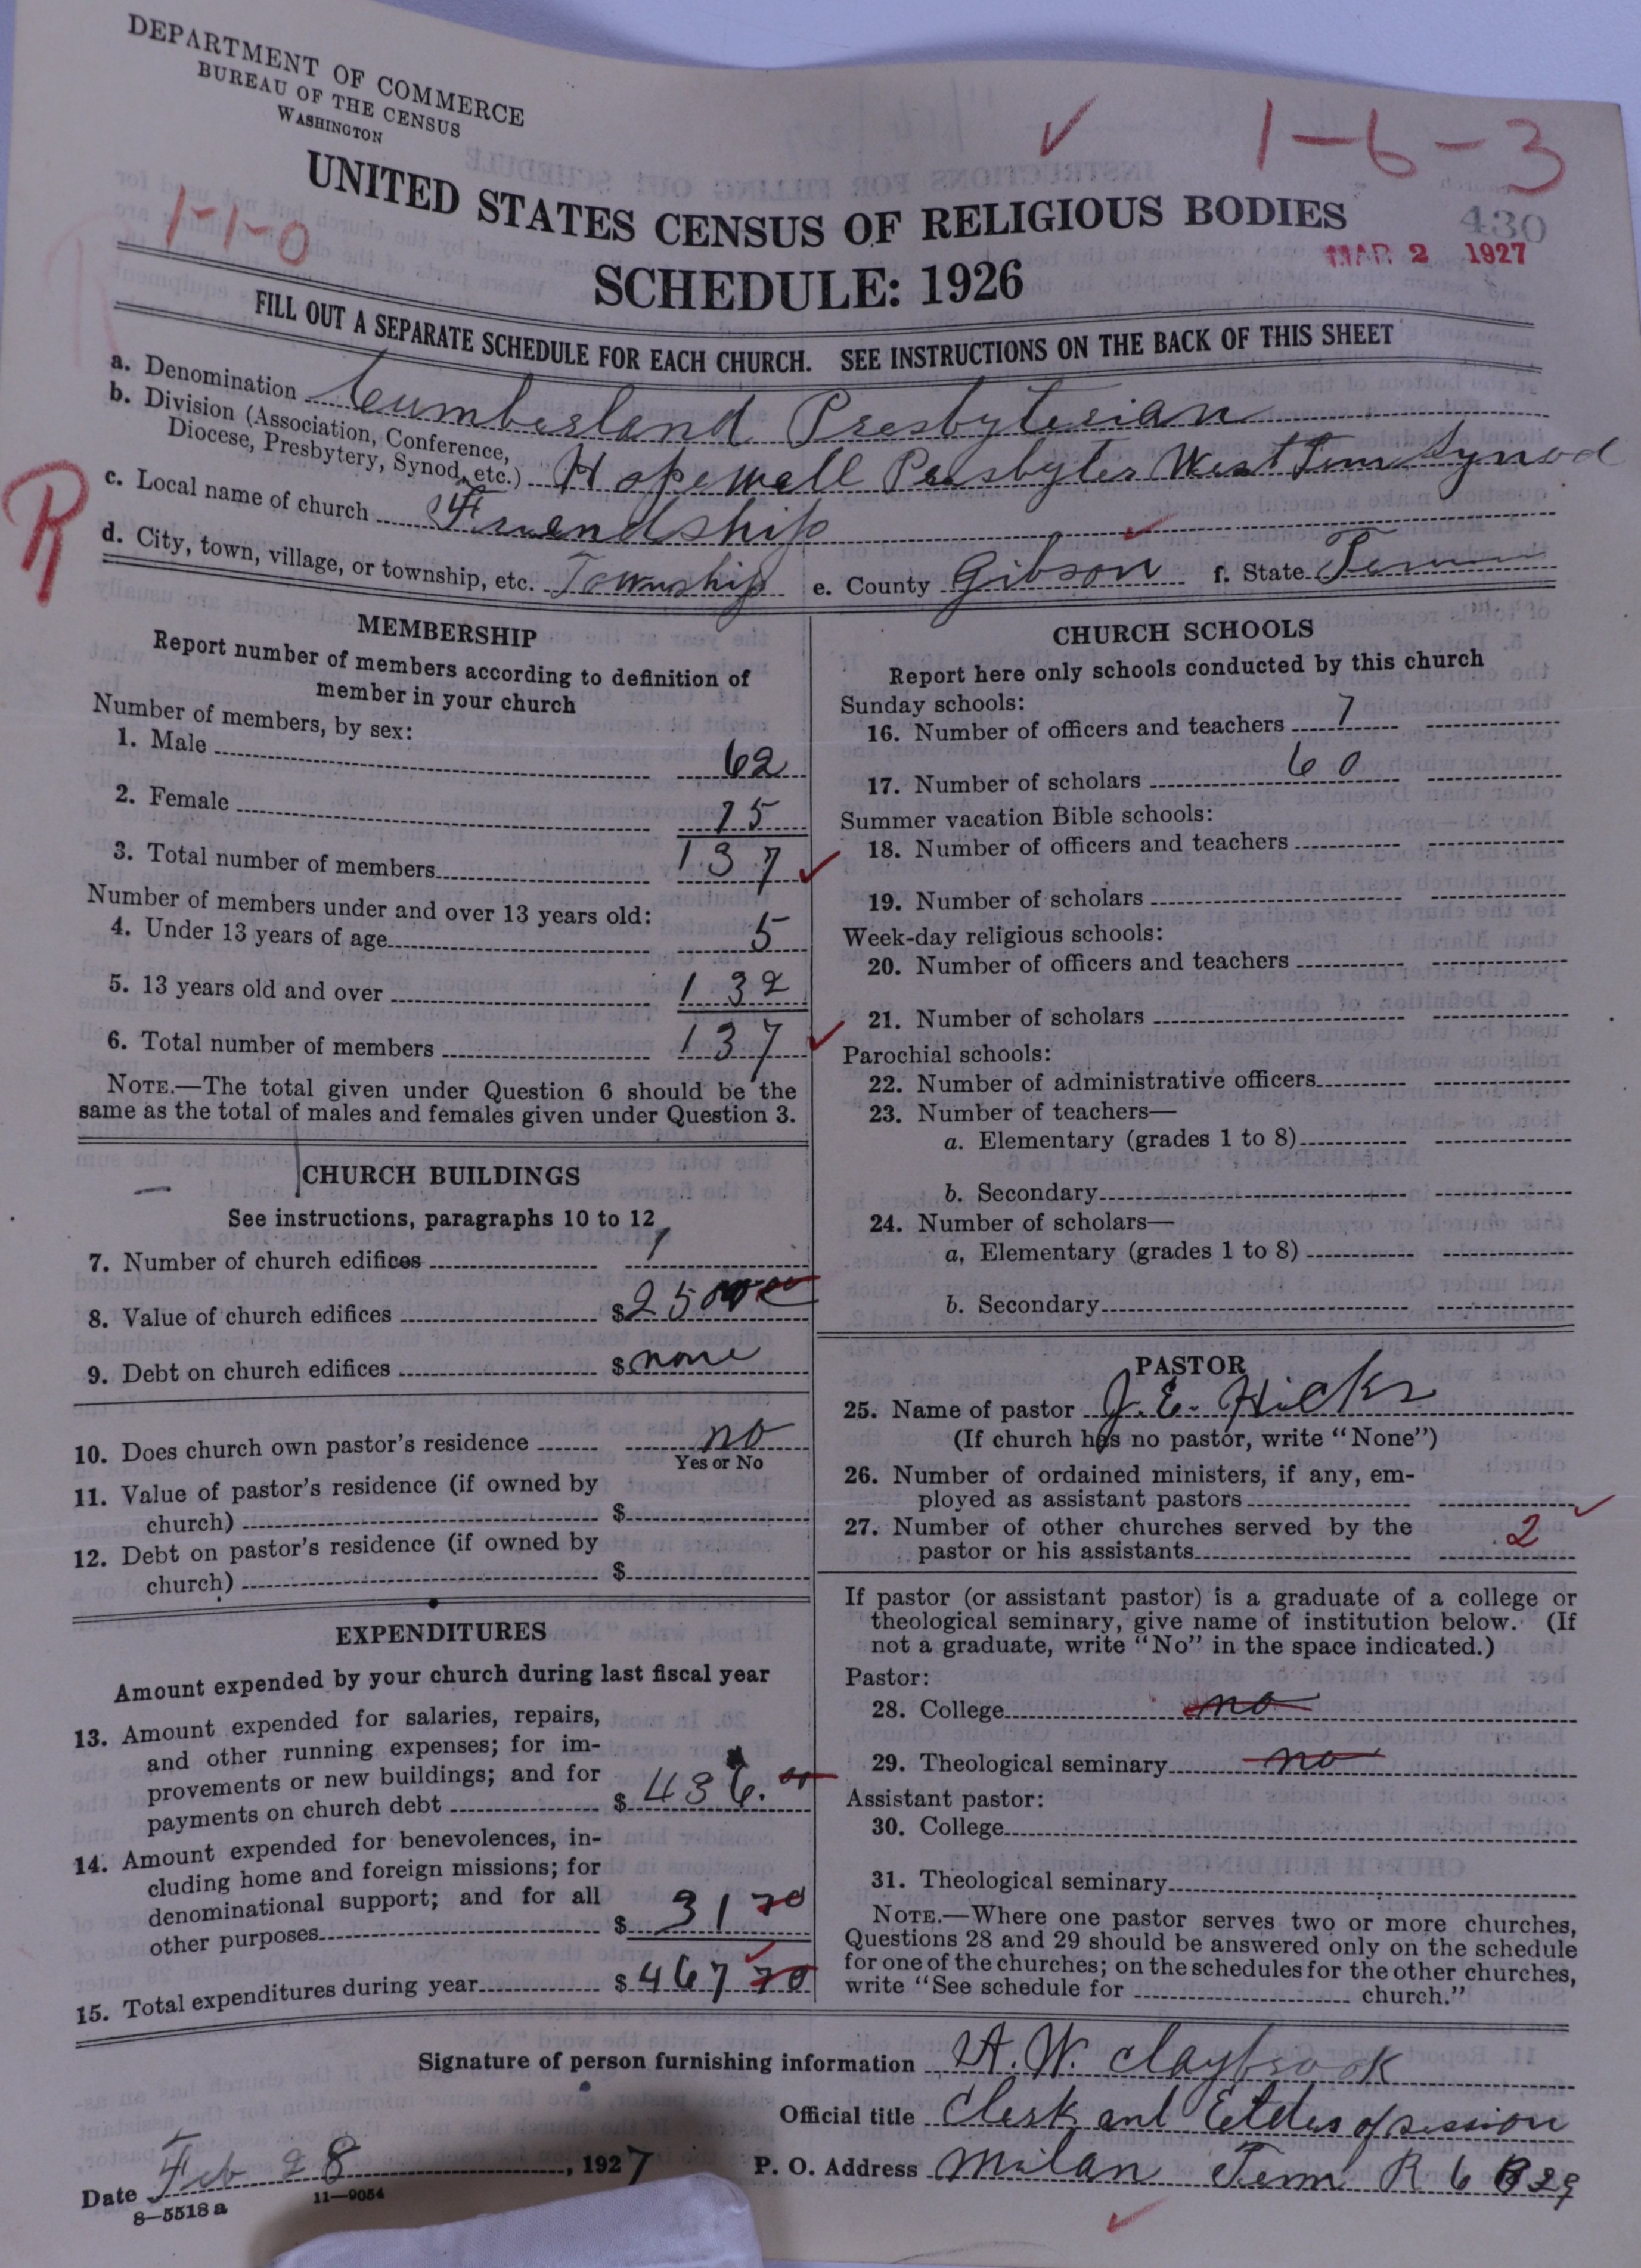 DEPARTMENT OF COMMERCE
BUREAU OF THE CENSUS
WASHINGTON
1-6-3
UNITED STATES CENSUS OF RELIGIOUS BODIES
430
1-1-0
MAR 2 1927
SCHEDULE: 1926
FILL OUT A SEPARATE SCHEDULE FOR EACH CHURCH. SEE INSTRUCTIONS ON THE BACK OF THIS SHEET
R
a. Denomination Cumberland Presbyterian
b. Division (Association, Conference,
Diocese, Presbytery, Synod, etc.) Hopewell Presbyter West Tenn Synod
c. Local name of church Friendship
d. City, town, village, or township, etc. Township e. County Gibson f. State Tenn
MEMBERSHIP
Report number of members according to definition of
member in your church
Number of members, by sex:
1. Male 62
2. Female 75
3. Total number of members 137
Number of members under and over 13 years old:
4. Under 13 years of age 5
5. 13 years old and over 132
6. Total number of members 137
NOTE.—The total given under Question 6 should be the
same as the total of males and females given under Question 3.
CHURCH BUILDINGS
See instructions, paragraphs 10 to 12
7. Number of church edifices 1
8. Value of church edifices $2500
9. Debt on church edifices $none
10. Does church own pastor's residence no
Yes or No
11. Value of pastor's residence (if owned by
church) $
12. Debt on pastor's residence (if owned by
church) $
EXPENDITURES
Amount expended by your church during last fiscal year
13. Amount expended for salaries, repairs,
and other running expenses; for im-
provements or new buildings; and for
payments on church debt $ 436.00
14. Amount expended for benevolences, in-
cluding home and foreign missions; for
denominational support; and for all
other purposes $ 31 70
15. Total expenditures during year $ 467 70
CHURCH SCHOOLS
Report here only schools conducted by this church
Sunday schools:
16. Number of officers and teachers 7
17. Number of scholars 60
Summer vacation Bible schools:
18. Number of officers and teachers
19. Number of scholars
Week-day religious schools:
20. Number of officers and teachers
21. Number of scholars
Parochial schools:
22. Number of administrative officers
23. Number of teachers—
a. Elementary (grades 1 to 8)
b. Secondary
24. Number of scholars—
a. Elementary (grades 1 to 8)
b. Secondary
PASTOR
25. Name of pastor J. E. Hicks
(If church has no pastor, write "None")
26. Number of ordained ministers, if any, em-
ployed as assistant pastors
27. Number of other churches served by the
pastor or his assistants 2
If pastor (or assistant pastor) is a graduate of a college or
theological seminary, give name of institution below. (If
not a graduate, write "No" in the space indicated.)
Pastor:
28. College no
29. Theological seminary no
Assistant pastor:
30. College
31. Theological seminary
NOTE.—Where one pastor serves two or more churches,
Questions 28 and 29 should be answered only on the schedule
for one of the churches; on the schedules for the other churches,
write "See schedule for church."
Signature of person furnishing information A. W. Claybrook
Official title Clerk and Elder of session
Date Feb 28, 1927 P. O. Address Milan Tenn R 6 B 29
8—5518 a 11—9054